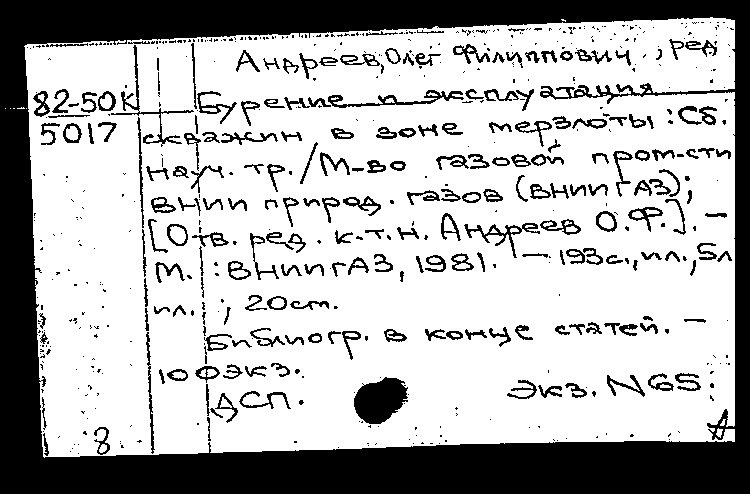 Андреев, Олег Филиппович, ред
82-50К Бурение и эксплуатация
5017 скважин в зоне мерзлоты: Сб.
науч. тр./М-во газовой пром-сти
ВНИИ природ. газов (ВНИИГАЗ);
[Отв. ред. к.т.н. Андреев О.Ф.]. –
М.: ВНИИГАЗ, 1981. – 193с., ил., 5л
ил.; 20см.
Библиогр. в конце статей. –
100экз.
ДСП. Экз. N65.
8